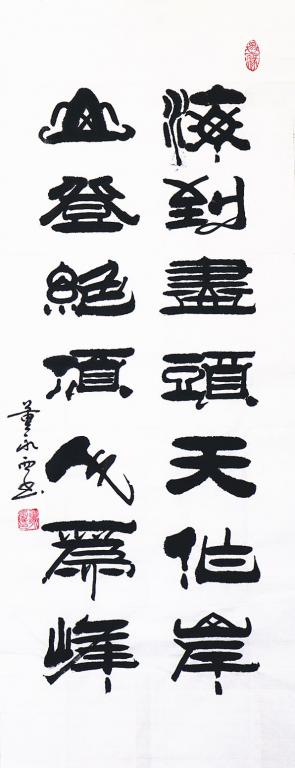 海到盡頭天作岸
山登絕頂我爲峰
董永西书